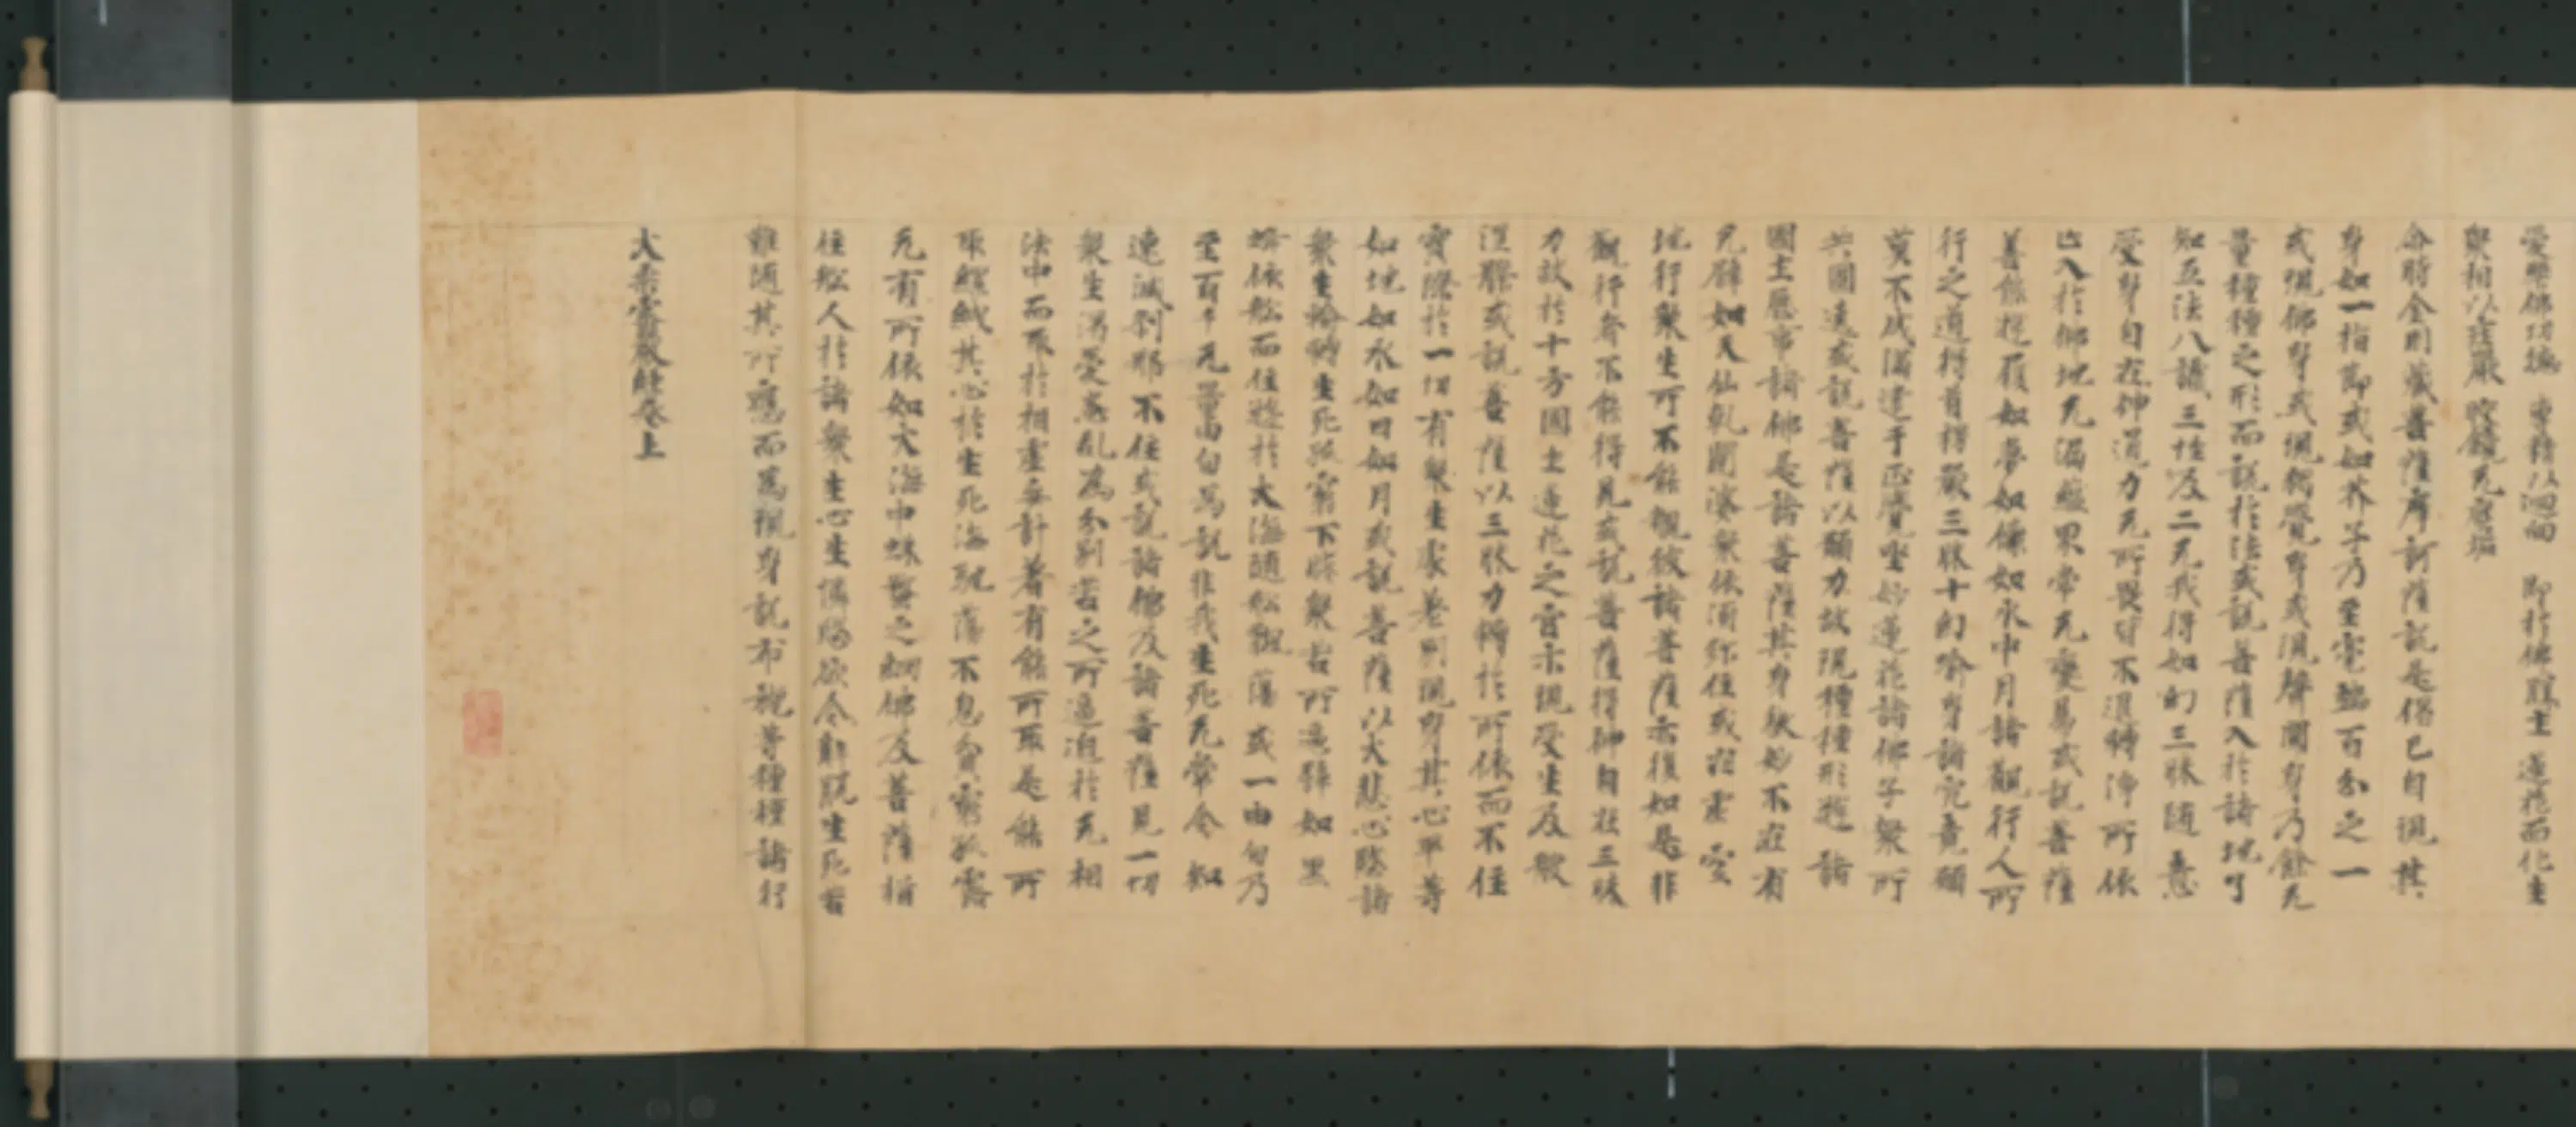 愛樂佛功德 專精以迴向 即於佛聲生 蓮花而化生
衆相以莊嚴 皎鏡无塵垢
尒時金剛藏菩薩摩訶薩說是偈已自現其
身如一指節或如芥子乃至毫端百分之一
或現佛身或現獨覺身或現聲聞身乃餘无
量種種之形而說於法或說菩薩入於諸地了
知五法八識三性及二无我得如幻三昧隨意
受身自在神通力无所畏皆不退轉淨所依
止入於佛地无漏蘊果常无變易或說菩薩
善能於履如夢如像如水中月諸觀行人所
行之道得首楞嚴三昧十幻喻身諸究竟願
莫不成滿逮于正覺坐妙蓮花諸佛子衆所
共圍遶或說菩薩以願力故現種種形遊諸
國土歷事諸佛是諸菩薩其身微妙不在有
无譬如天仙乹闥婆衆依須弥住或在虛空
地行衆生所不能覩彼諸菩薩亦復如是非
觀行者不能得見或說菩薩得神自在三昧
力故於十方國土蓮花之宮示現受生及般
涅槃或說菩薩以三昧力轉於所依而不住
實際於一切有衆生處差別現身其心平等
如地如水如日如月或說菩薩以大悲心愍諸
衆生輪轉生死孤窮下賤衆苦所逼譬如黑
蜂依舩而住遊於大海隨舩飄蕩或一由旬乃
至百千无量由旬為說非我生死无常令知
速滅剎那不住或說諸佛及諸菩薩見一切
衆生渴愛惑亂為分別苦之所逼迫於无相
法中而取於相虛妄計著有能所取是能所
取纏縛其心於生死海馳蕩不息貧窮孤露
无有所依如大海中蛛蝥之網佛及菩薩猶
住舩人於諸衆生心生憐愍欲令解脫生死苦
難隨其所應而爲現身說布施等種種諸行
大乘密嚴經卷上